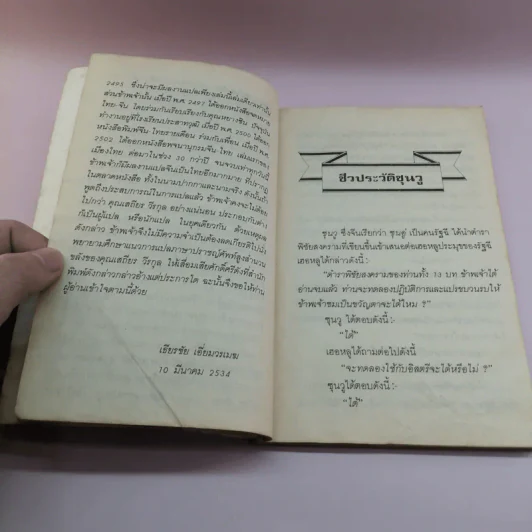 2495 ซึ่งน่าจะมีผลงานแปลเพียงเล่มนี้เล่มเดียวเท่านั้น
ส่วนข้าพเจ้านั้น เมื่อปี พ.ศ. 2497 ได้ออกหนังสือจดหมาย
ไทย-จีน โดยร่วมกันเรียบเรียงกับคุณหยางซิน ปัจจุบัน
ทำงานอยู่ที่โรงเรียนประสาทวุฒิ เมื่อปี พ.ศ. 2500 ได้ออก
หนังสือพิมพ์จีน ไทยรายเดือน ร่วมกับเพื่อน เมื่อปี พ.ศ.
2502 ได้ออกหนังสือพจนานุกรมจีน ไทย เล่มแรกของ
เมืองไทย ต่อมาในช่วง 30 กว่าปี จนจวบเท่าทุกวันนี้
ข้าพเจ้าก็มีผลงานแปลจีนเป็นไทยอีกมากมาย ที่ปรากฏ
ในตลาดหนังสือ ทั้งในนามปากกาและนามจริง ดังนั้นถ้า
พูดถึงประสบการณ์ในการแปลแล้ว ข้าพเจ้าคงจะไม่ด้อย
ไปกว่า คุณเสถียร วีรกุล อย่างแน่นอน ประกอบกับต่าง
ก็เป็นผู้แปล หรือนักแปล ในยุคเดียวกัน ด้วยเหตุผล
ดังกล่าว ข้าพเจ้าจึงไม่มีความจำเป็นต้องลดเกียรติไปนั่ง
พยายามศึกษาแนวการแปลภาษาปราชญ์ศัพท์สูงสำนวน
ขลังของคุณเสถียร วีรกุล ให้เสื่อมเสียศักดิ์ศรีดังที่สำนัก
พิมพ์ดังกล่าวกล่าวอ้างแต่ประการใด ฉะนั้นจึงขอให้ท่าน
ผู้อ่านเข้าใจตามนี้ด้วย
เธียรชัย เอี่ยมวรเมธ
10 มีนาคม 2534
ชีวประวัติซุนวู
ซุนวู ซึ่งจีนเรียกว่า ซุนอู่ เป็นคนรัฐฉี ได้นำตำรา
พิชัยสงครามที่เขียนขึ้นเข้าเสนอต่อเฮอหลูประมุขของรัฐอู๋
เฮอหลูได้กล่าวดังนี้ :
"ตำราพิชัยสงครามของท่านทั้ง 13 บท ข้าพเจ้าได้
อ่านจบแล้ว ท่านจะทดลองปฏิบัติการและแปรขบวนรบให้
ข้าพเจ้าชมเป็นขวัญตาจะได้ไหม ?"
ซุนวู ได้ตอบดังนี้ :-
"ได้"
เฮอหลูได้ถามต่อไปดังนี้
"จะทดลองใช้กับอิสตรีจะได้หรือไม่ ?"
ซุนวูได้ตอบดังนี้ :-
"ได้"